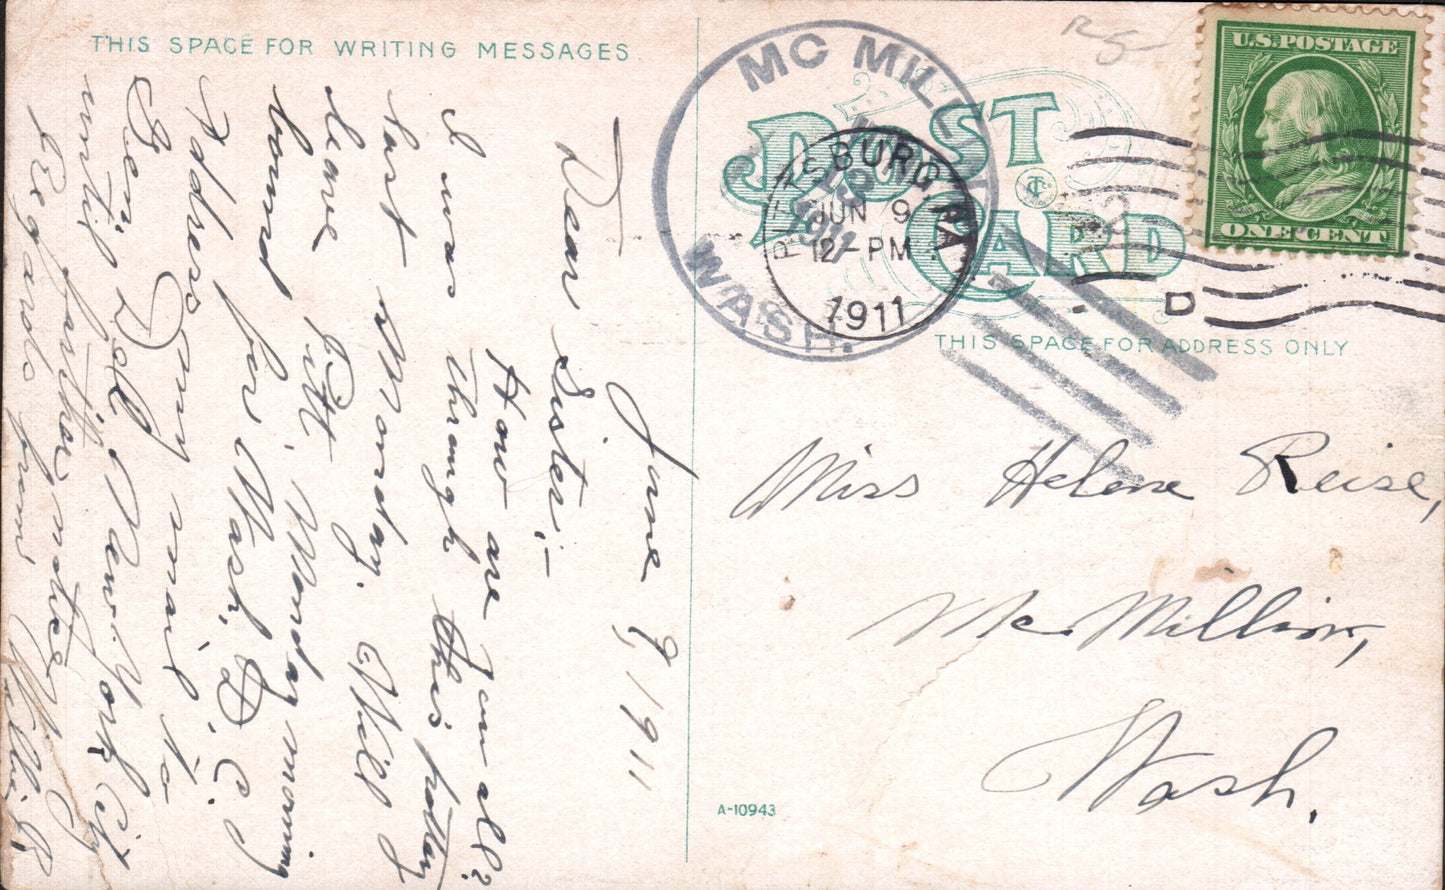 THIS SPACE FOR WRITING MESSAGES
June 9, 1911
Dear Sister:—
How are you all?
I was through this pottery
last Monday. Will
leave Pitt. Monday morning
bound for Wash, D.C.
Address my mail to
Gen. Del. New York City
until further notice
Regards from Willie R
POST CARD
THIS SPACE FOR ADDRESS ONLY.
MC MILLIN
13
1911
WASH.
PITTSBURG, PA
JUN 9
12-PM
1911
D
U.S. POSTAGE
ONE CENT
Miss Helene Reise,
Mc Millin,
Wash.
A-10943